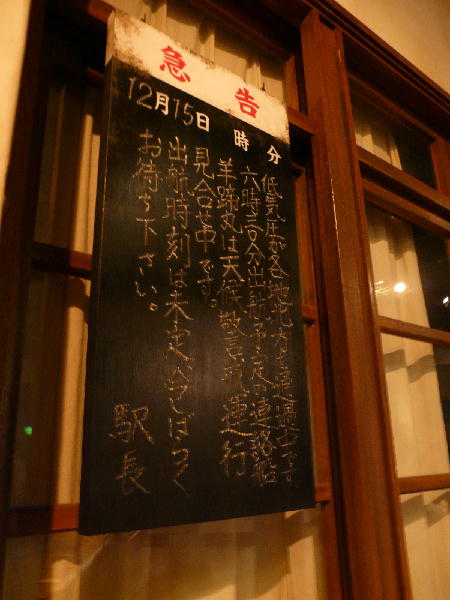 急告
12月15日 時 分
低気圧が各地北方通過中です。
六時分出航予定の連絡船
羊蹄丸は天候警運行
見合せ中です。
出航時刻は未定今しばらく
お待ち下さい。
駅長